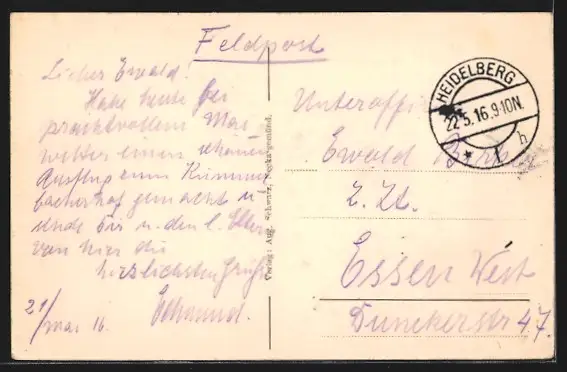 Feldpost
Lieber Ewald!
Habe heute bei
prachtvollem Mai-
wetter einen schönen
Ausflug zum Kümmel-
bacherhof gemacht u.
sende Dir u. den l. Eltern
von hier die
herzlichsten Grüße
Edmund.
21/
Mai 16.
Verlag: Aug. Schwarz, Neckargemünd.
HEIDELBERG
22.5.16.9-10N.
* 1 h
Unteroffi
Ewald
z. Zt.
Essen West
Dunckerstr 47.